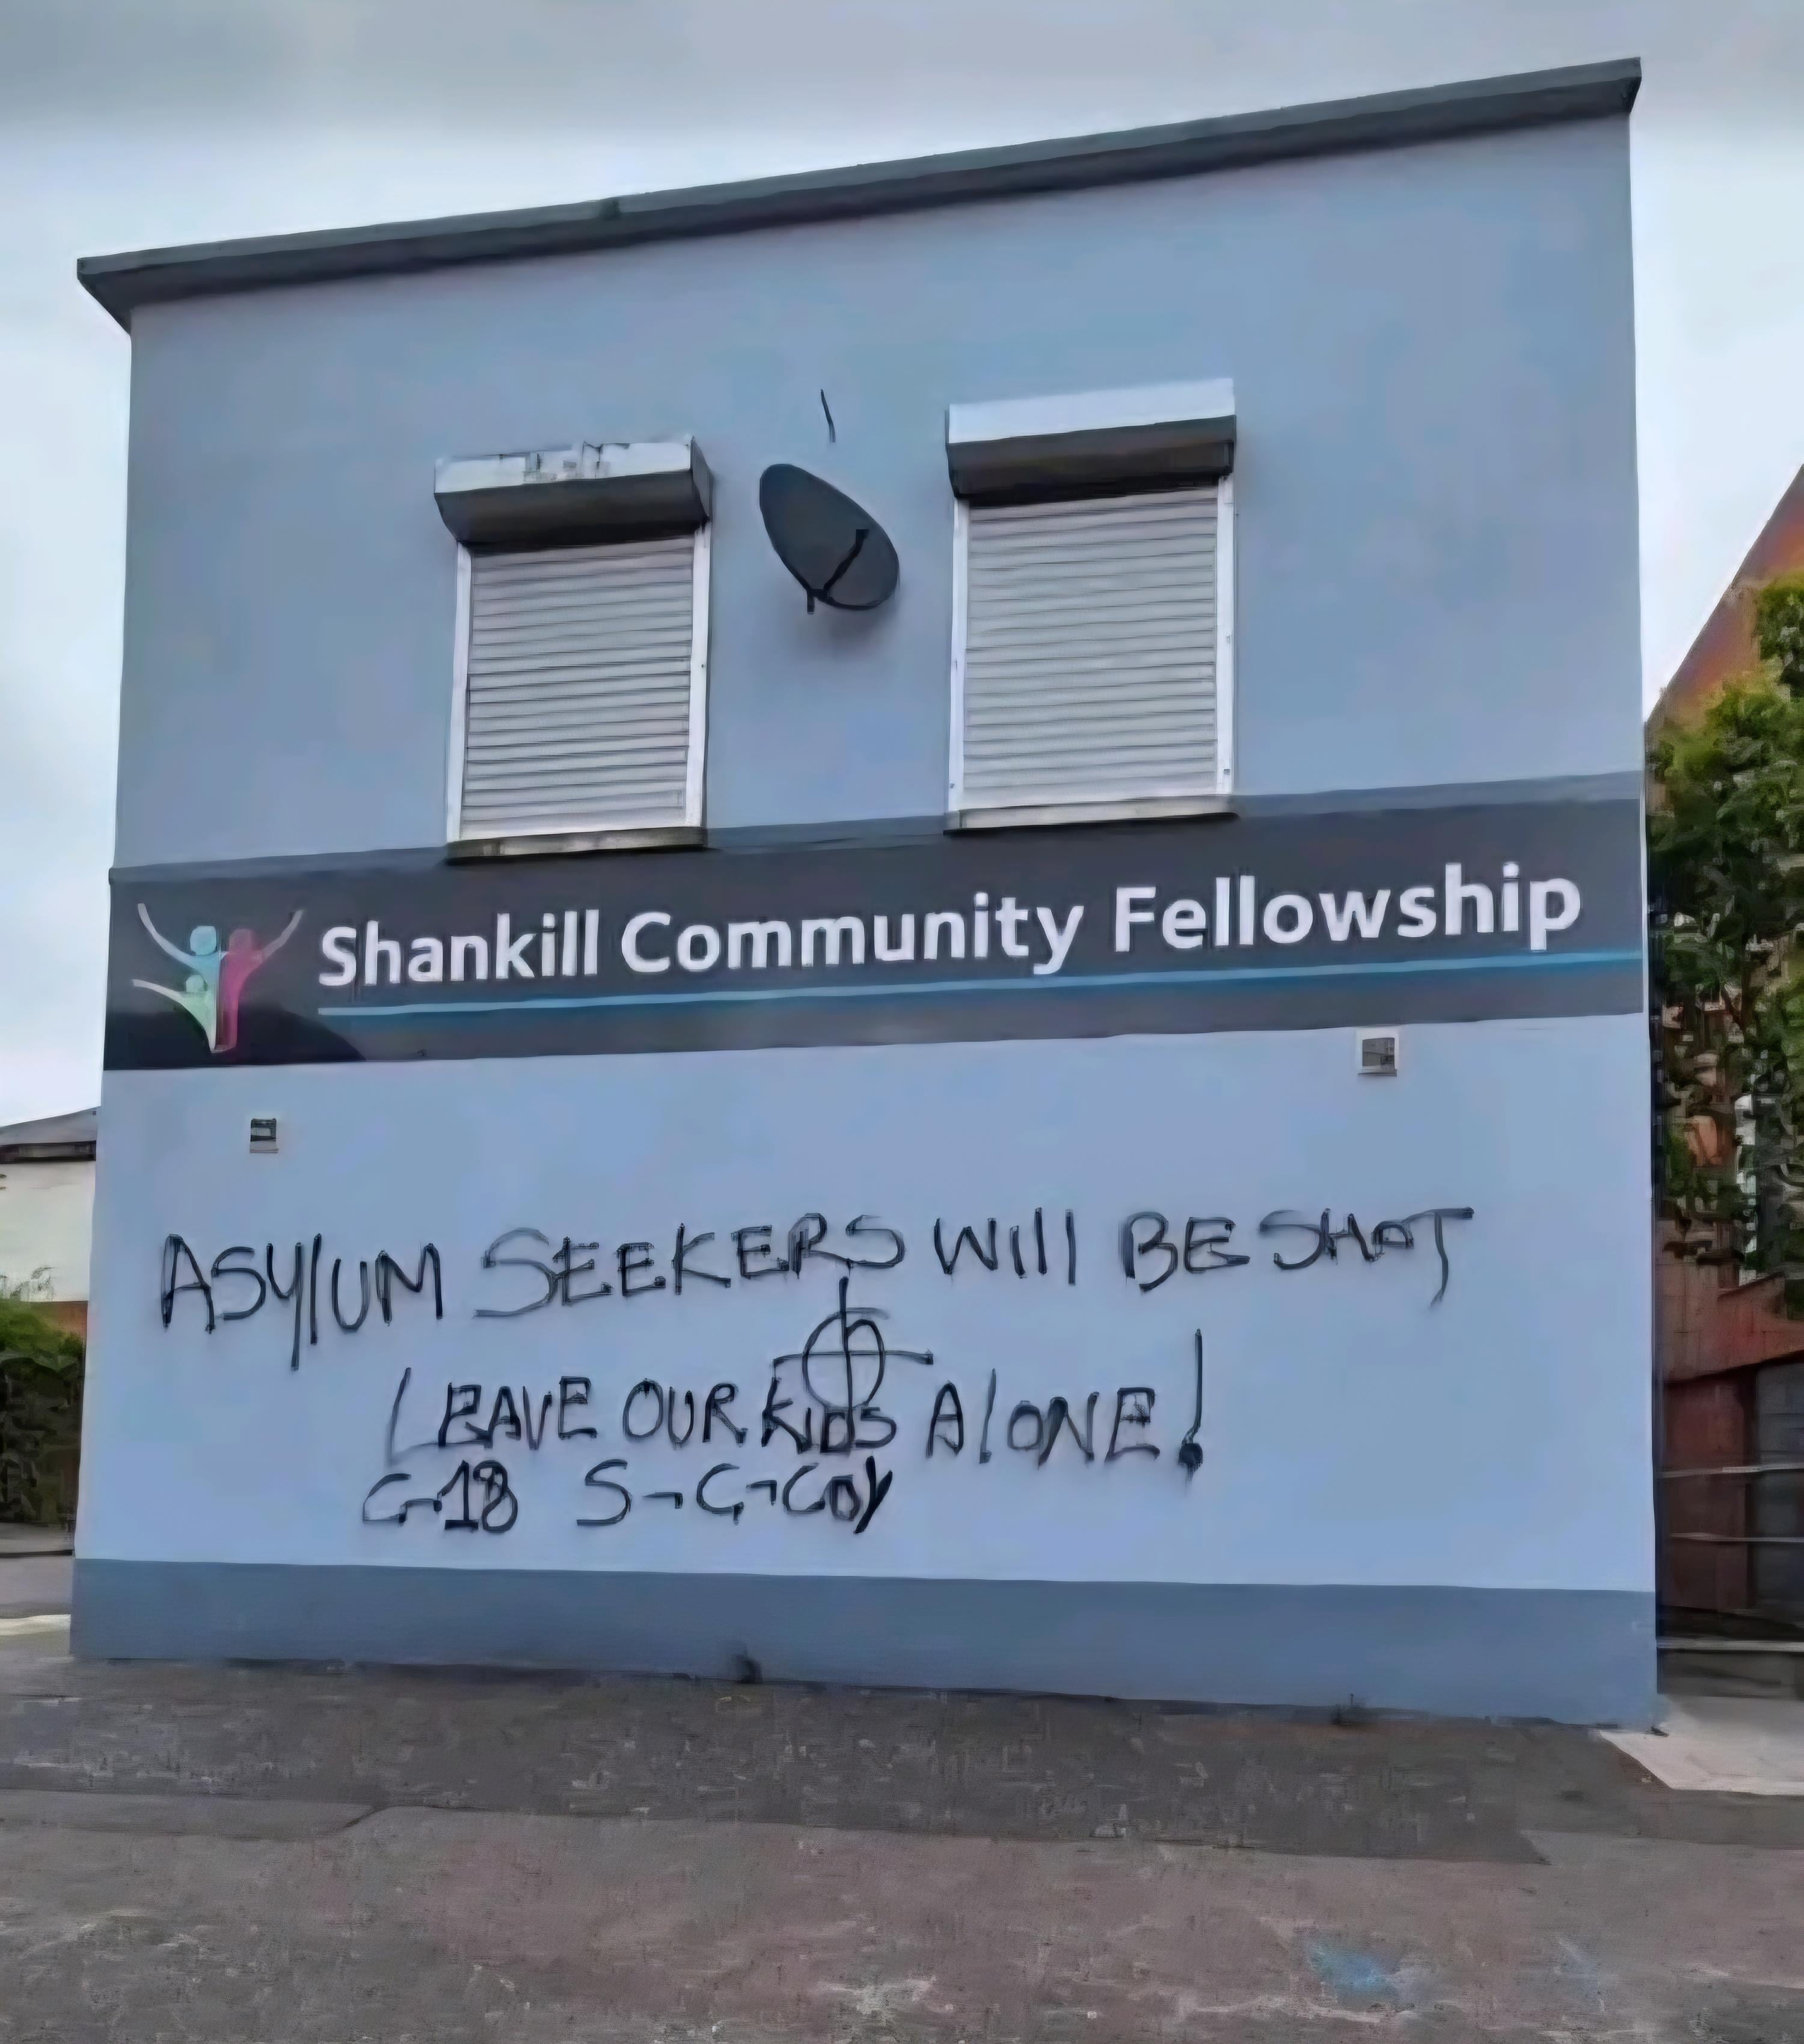 Shankill Community Fellowship
ASYlUM SEEKERS Will BE SHOT
LEAVE OUR KIDS AlONE!
C-18 S-C-Coy